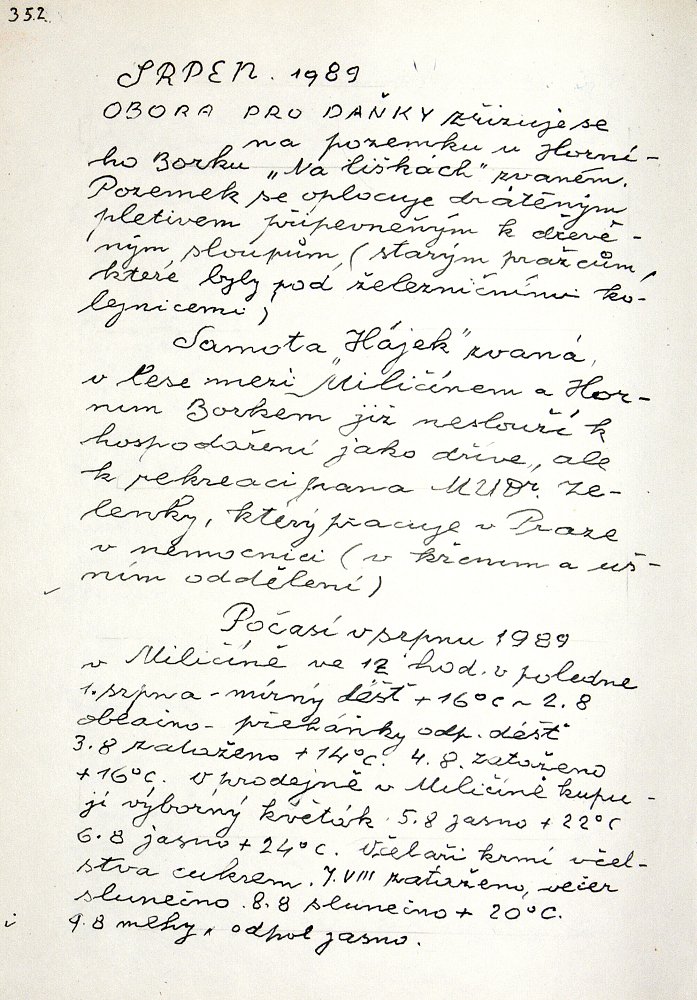 352
SRPEN. 1989
OBORA PRO DAŇKY zřizuje se
na pozemku u Horní-
ho Borku „Na liškách" zvaném.
Pozemek se oplocuje drátěným
pletivem připevněným k dřevě-
ným sloupům, (starým pražcům,
které byly pod železničními ko-
lejnicemi)
Samota „Hájek" zvaná,
v lese mezi Miličínem a Hor-
ním Borkem již neslouží k
hospodaření jako dříve, ale
k rekreaci pana MUDr. Ze-
lenky, který pracuje v Praze
v nemocnici (v krčním a uš-
ním oddělení)
Počasí v srpnu 1989
v Miličíně ve 12 hod. v poledne
1. srpna - mírný déšť +16°C ~ 2.8
občasno - přeháňky odp. déšť
3.8 zataženo +14°C. 4.8. zataženo
+16°C. V prodejně v Miličíně kupu-
jí výborný květák. 5.8 jasno +22°C
6.8 jasno +24°C. Včelaři krmí včel-
stva cukrem. 7.VIII zataženo, večer
slunečno. 8.8 slunečno + 20°C.
9.8 mlhy, odpol jasno.